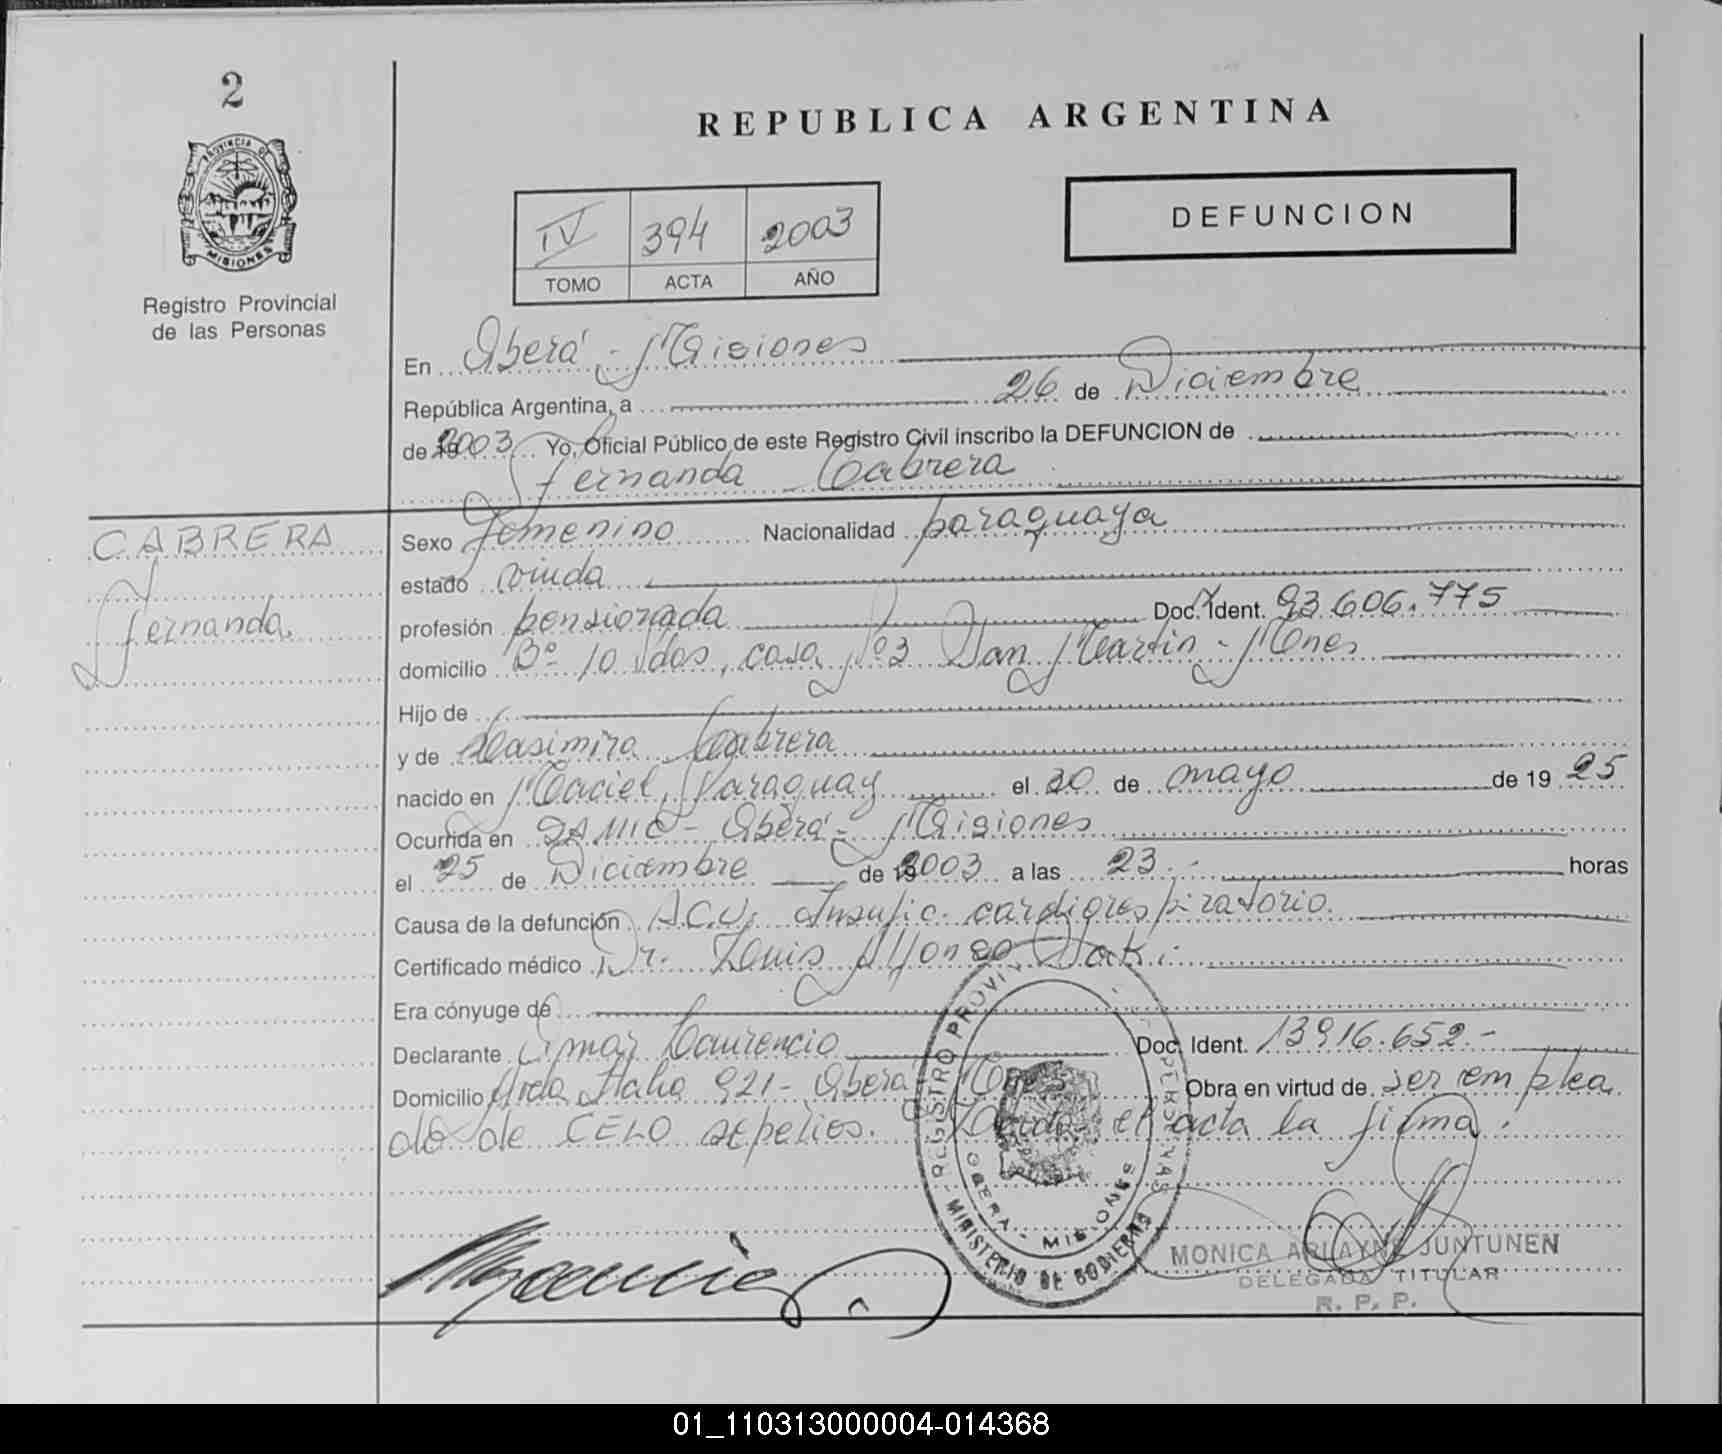 2
PROVINCIA DE
MISIONES
Registro Provincial
de las Personas
REPUBLICA ARGENTINA
IV 394 2003
TOMO ACTA AÑO
DEFUNCION
En Oberá - Misiones
República Argentina, a 26 de Diciembre
de 2003 Yo, Oficial Público de este Registro Civil inscribo la DEFUNCION de
Fernanda Cabrera
CABRERA
Fernanda.
Sexo Femenino Nacionalidad paraguaya
estado viuda
profesión pensionada Doc. Ident. 93.606.775
domicilio Bº 10 Vdos, casa Nº3 San Martin - Mnes
Hijo de
y de Casimira Cabrera
nacido en Maciel, Paraguay el 30 de mayo de 19 25
Ocurrida en SAMIC - Oberá - Misiones
el 25 de Diciembre de 2003 a las 23.- horas
Causa de la defunción A.C.V. Insufic. cardiorespiratorio.
Certificado médico Dr. Luis Alfonso
Era cónyuge de
Declarante Omar Laurencio Doc. Ident. 13916.652.-
Domicilio Avda Italia 921 - Oberá Mnes Obra en virtud de ser emplea
do de CELO sepelios. Leida el acta la firma.
REGISTRO PROVINCIAL PERSONAS
OBERA - MISIONES
MINISTERIO DE GOBIERNO
MONICA ARLAYNE JUNTUNEN
DELEGADA TITULAR
R. P. P.
01_110313000004-014368